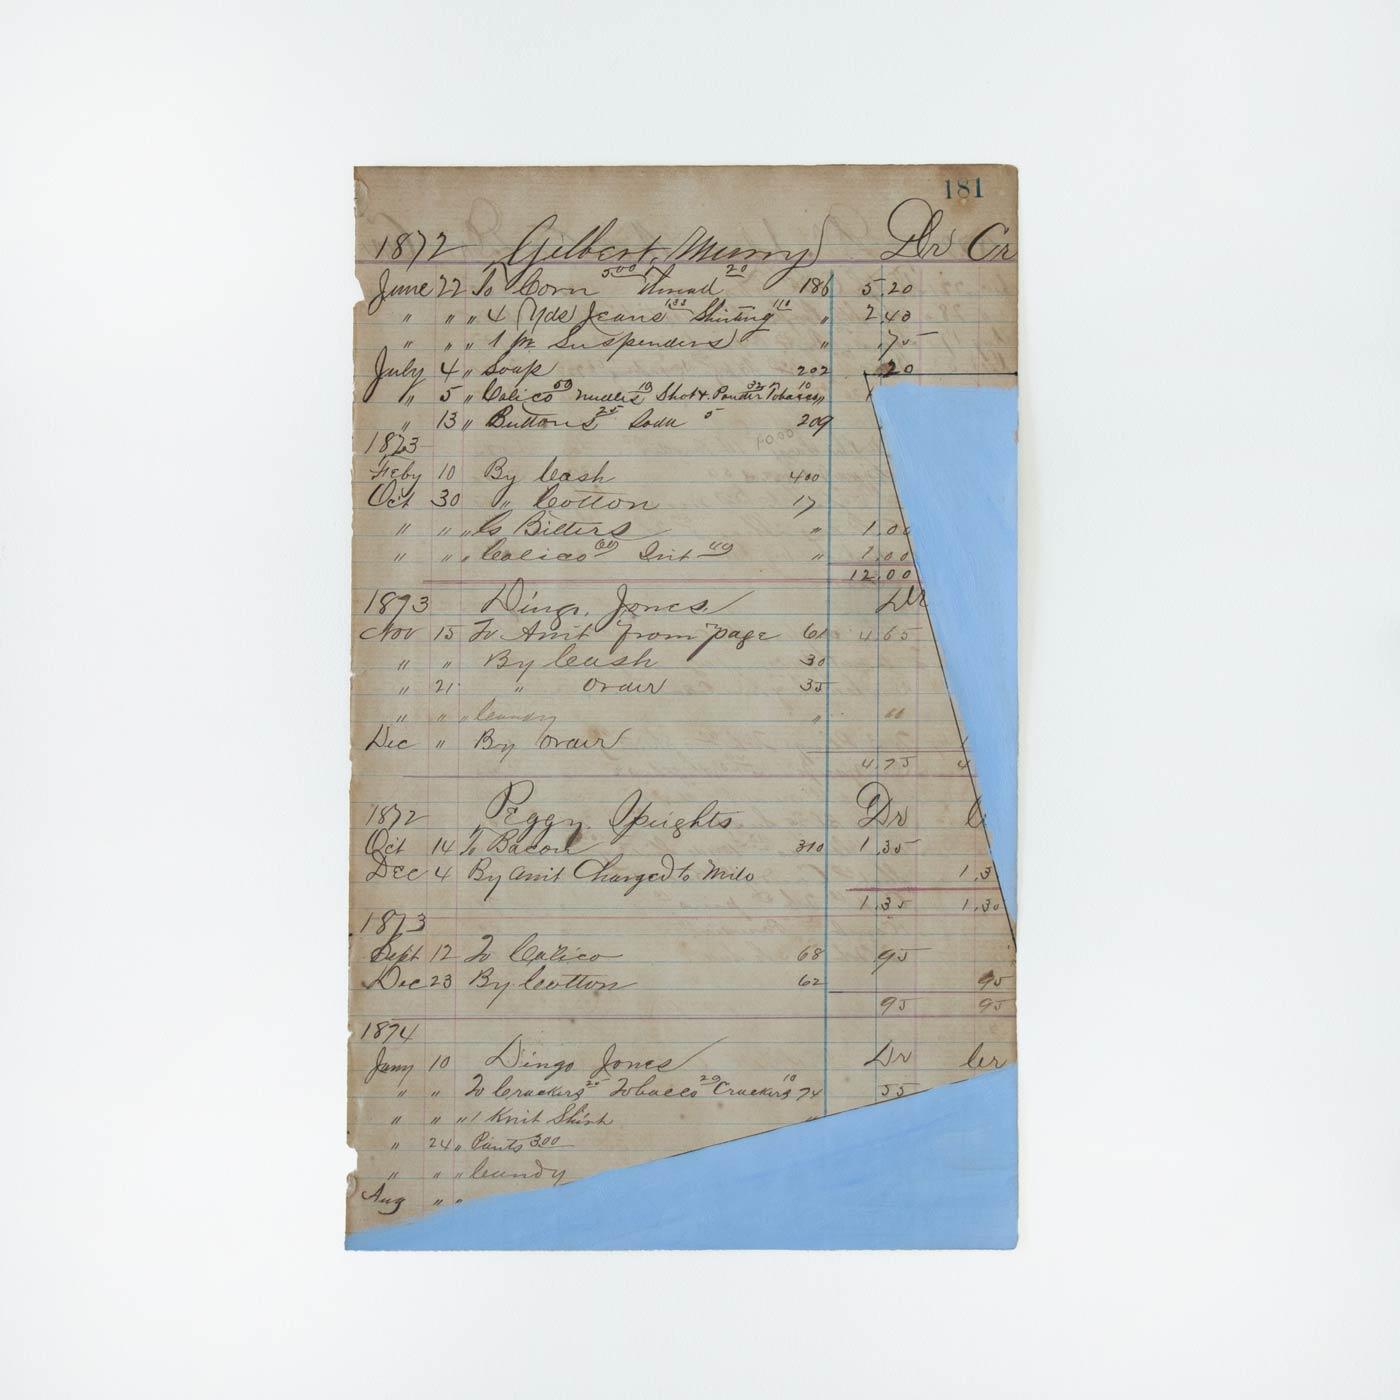 181
1872 Gilbert Murry Dr Cr
June 22 To Corn 5.00 Thread 20 186 5.20
" " " 4 Yds Jeans 1.33 Shirting 110 " 2.40
" " " 1 pr Suspenders " .75
July 4 " Soap 202 .20
" 5 " Calico 50 Needles 10 Shot & Powder Tobacco 10 "
" 13 " Buttons 25 Soda 5 209
1873
Feby 10 By Cash 400
Oct 30 " Cotton 17
" " " Bitters " 1.00
" " " Calico 60 " 1.00
12.00
1873 Dingo Jones Dr
Nov 15 To Amt from page 61 4.65
" " By Cash 30
" 21 " Order 35
" " " Candy " 10
Dec " By Order
4.75 4
1872 Peggy Speights Dr C
Oct 14 To Bacon 310 1.35
Dec 4 By Amt Charged to Milo 1.3
1.35 1.30
1873
Sept 12 To Calico 68 95
Dec 23 By Cotton 62 95
95 95
1874
Jany 10 Dingo Jones Dr Cr
" " To Crackers 25 Tobacco 20 Crackers 10 74 55
" " " 1 Knit Shirt "
" 24 " Pants 3.00
" " " Candy
Aug " "